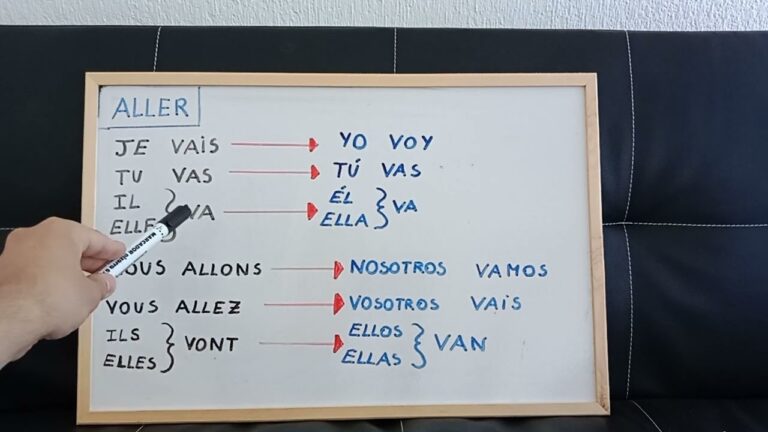 ALLER
JE VAIS YO VOY
TU VAS TÚ VAS
IL ÉL
VA VA
ELLE ELLA
OUS ALLONS NOSOTROS VAMOS
VOUS ALLEZ VOSOTROS VAIS
ILS ELLOS
VONT VAN
ELLES ELLAS
MARCADOR